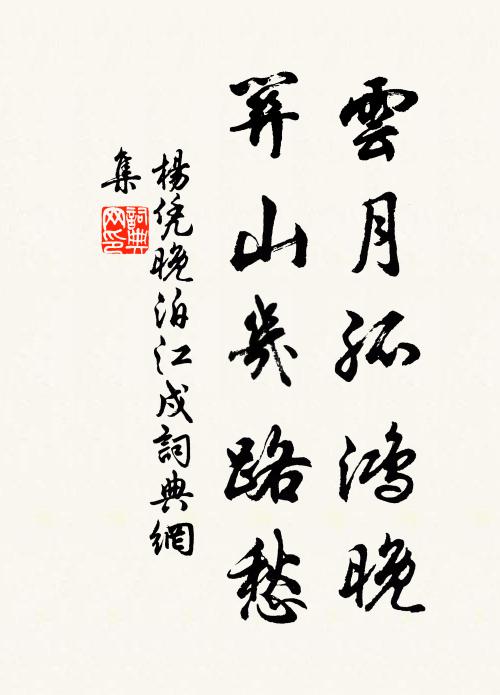 雲月孤鴻晚
關山幾路愁
楊凭晚泊江戍詞典網
集
詞典
网印